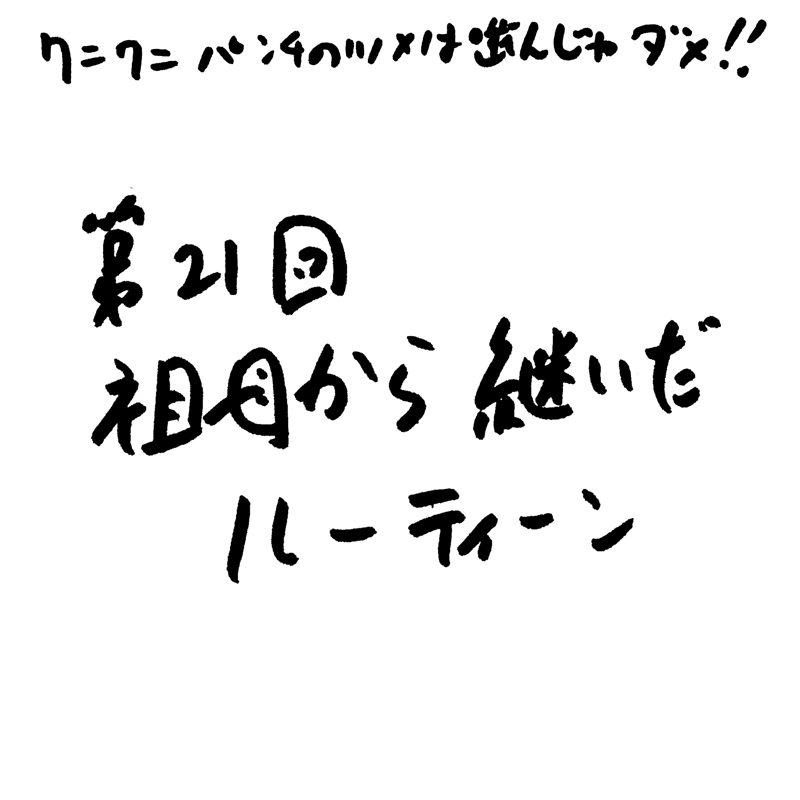 ワニワニパンチのツメは噛んじゃダメ!!
第21回
祖母から継いだ
ルーティーン